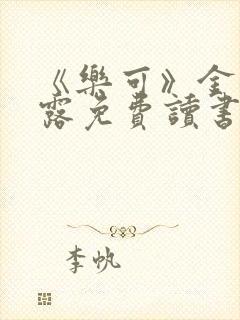 《樂可》金
露免費讀書
李帆